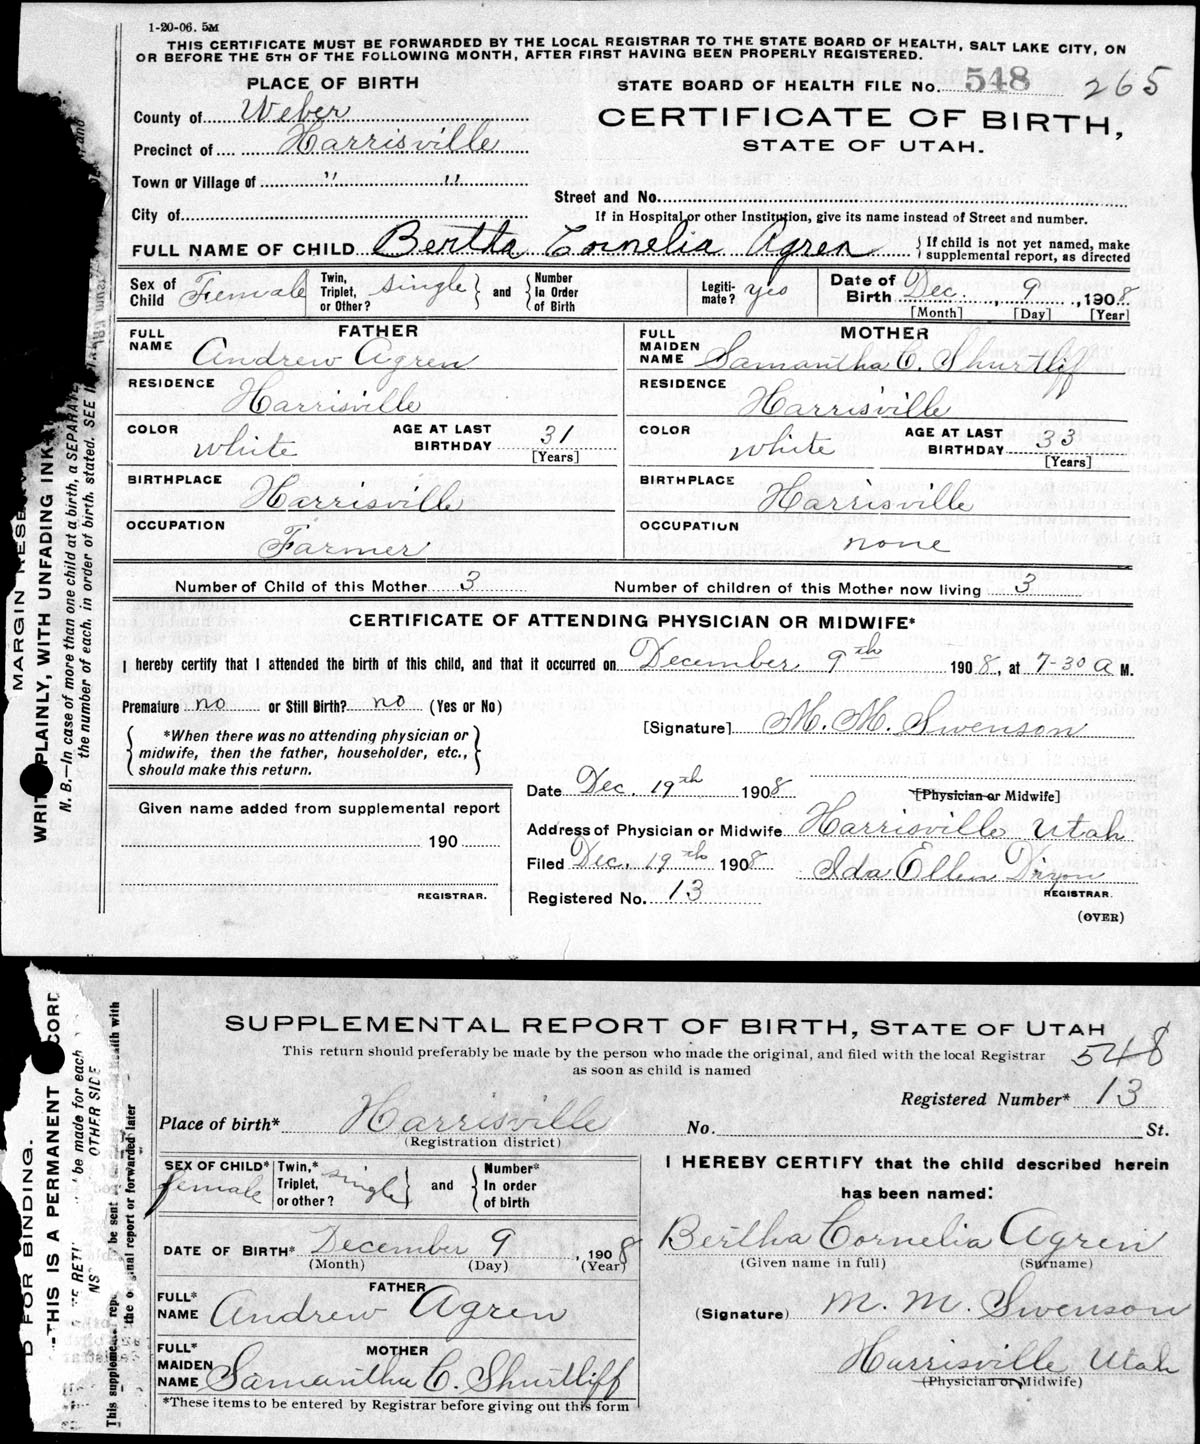 1-20-06. 5M
THIS CERTIFICATE MUST BE FORWARDED BY THE LOCAL REGISTRAR TO THE STATE BOARD OF HEALTH, SALT LAKE CITY, ON
OR BEFORE THE 5TH OF THE FOLLOWING MONTH, AFTER FIRST HAVING BEEN PROPERLY REGISTERED.
PLACE OF BIRTH
STATE BOARD OF HEALTH FILE No. 548 265
County of Weber
CERTIFICATE OF BIRTH,
Precinct of Harrisville
STATE OF UTAH.
Town or Village of " "
Street and No.
City of
If in Hospital or other Institution, give its name instead of Street and number.
FULL NAME OF CHILD Bertha Cornelia Agren { If child is not yet named, make
supplemental report, as directed
Sex of Child Female Twin, Triplet, or Other? single } and { Number In Order of Birth Legiti-mate? yes Date of Birth Dec. , 9 , 1908
[Month] [Day] [Year]
FATHER
FULL NAME Andrew Agren
RESIDENCE Harrisville
COLOR white AGE AT LAST BIRTHDAY 31
[Years]
BIRTHPLACE Harrisville
OCCUPATION Farmer
MOTHER
FULL MAIDEN NAME Samantha C. Shurtliff
RESIDENCE Harrisville
COLOR white AGE AT LAST BIRTHDAY 33
[Years]
BIRTHPLACE Harrisville
OCCUPATION none
Number of Child of this Mother 3 Number of children of this Mother now living 3
CERTIFICATE OF ATTENDING PHYSICIAN OR MIDWIFE*
I hereby certify that I attended the birth of this child, and that it occurred on December 9th 1908, at 7-30 A M.
Premature no or Still Birth? no (Yes or No)
[Signature] M. M. Swenson
{ *When there was no attending physician or
midwife, then the father, householder, etc.,
should make this return. }
[Physician or Midwife]
Date Dec. 19th 1908
Given name added from supplemental report
190
REGISTRAR.
Address of Physician or Midwife Harrisville Utah
Filed Dec. 19th 1908 Ida Ellen Dixon
REGISTRAR.
Registered No. 13
(OVER)
MARGIN RESER
WRIT PLAINLY, WITH UNFADING INK
N. B.—In case of more than one child at a birth, a SEPARATE
the number of each, in order of birth, stated. SEE
SUPPLEMENTAL REPORT OF BIRTH, STATE OF UTAH
This return should preferably be made by the person who made the original, and filed with the local Registrar
as soon as child is named
548
Registered Number* 13
Place of birth* Harrisville No. St.
(Registration district)
SEX OF CHILD* female Twin,* Triplet, or other? single } and { Number* In order of birth
DATE OF BIRTH* December 9 , 1908
(Month) (Day) (Year)
FATHER
FULL* NAME Andrew Agren
MOTHER
FULL* MAIDEN NAME Samantha C. Shurtliff
*These items to be entered by Registrar before giving out this form
I HEREBY CERTIFY that the child described herein
has been named:
Bertha Cornelia Agren
(Given name in full) (Surname)
(Signature) M. M. Swenson
Harrisville Utah
(Physician or Midwife)
D FOR BINDING.
-THIS IS A PERMANENT CORD
be made for each
OTHER SIDE
This supplemental be sent health with
the original report or forwarded later